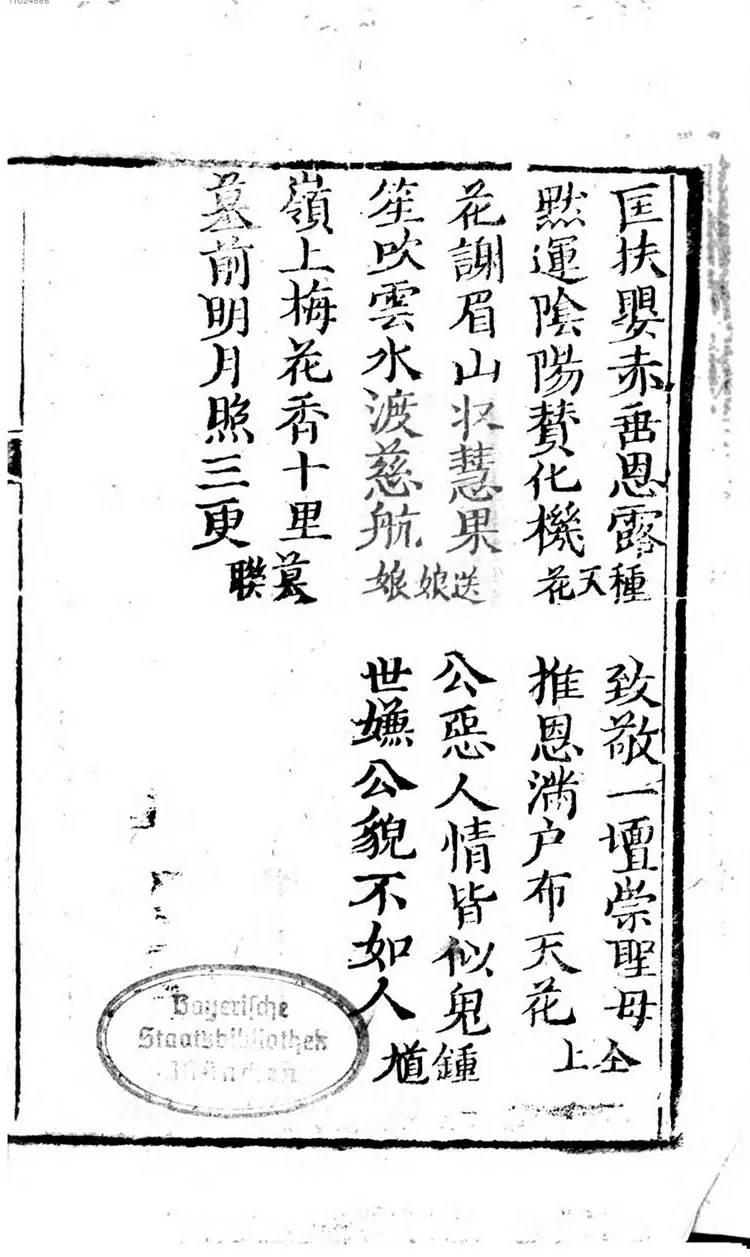 11024566
匡扶嬰赤垂恩露
默運陰陽賛化機
種天花
花謝眉山収慧果
笙吹雲水渡慈航
送娘娘
嶺上梅花香十里
墓前明月照三更
墓聯
致敬一壇崇聖母
推恩滿户布天花
仝上
公惡人情皆似鬼
世嫌公貌不如人
鍾馗
Bayerische
Staatsbibliothek
München